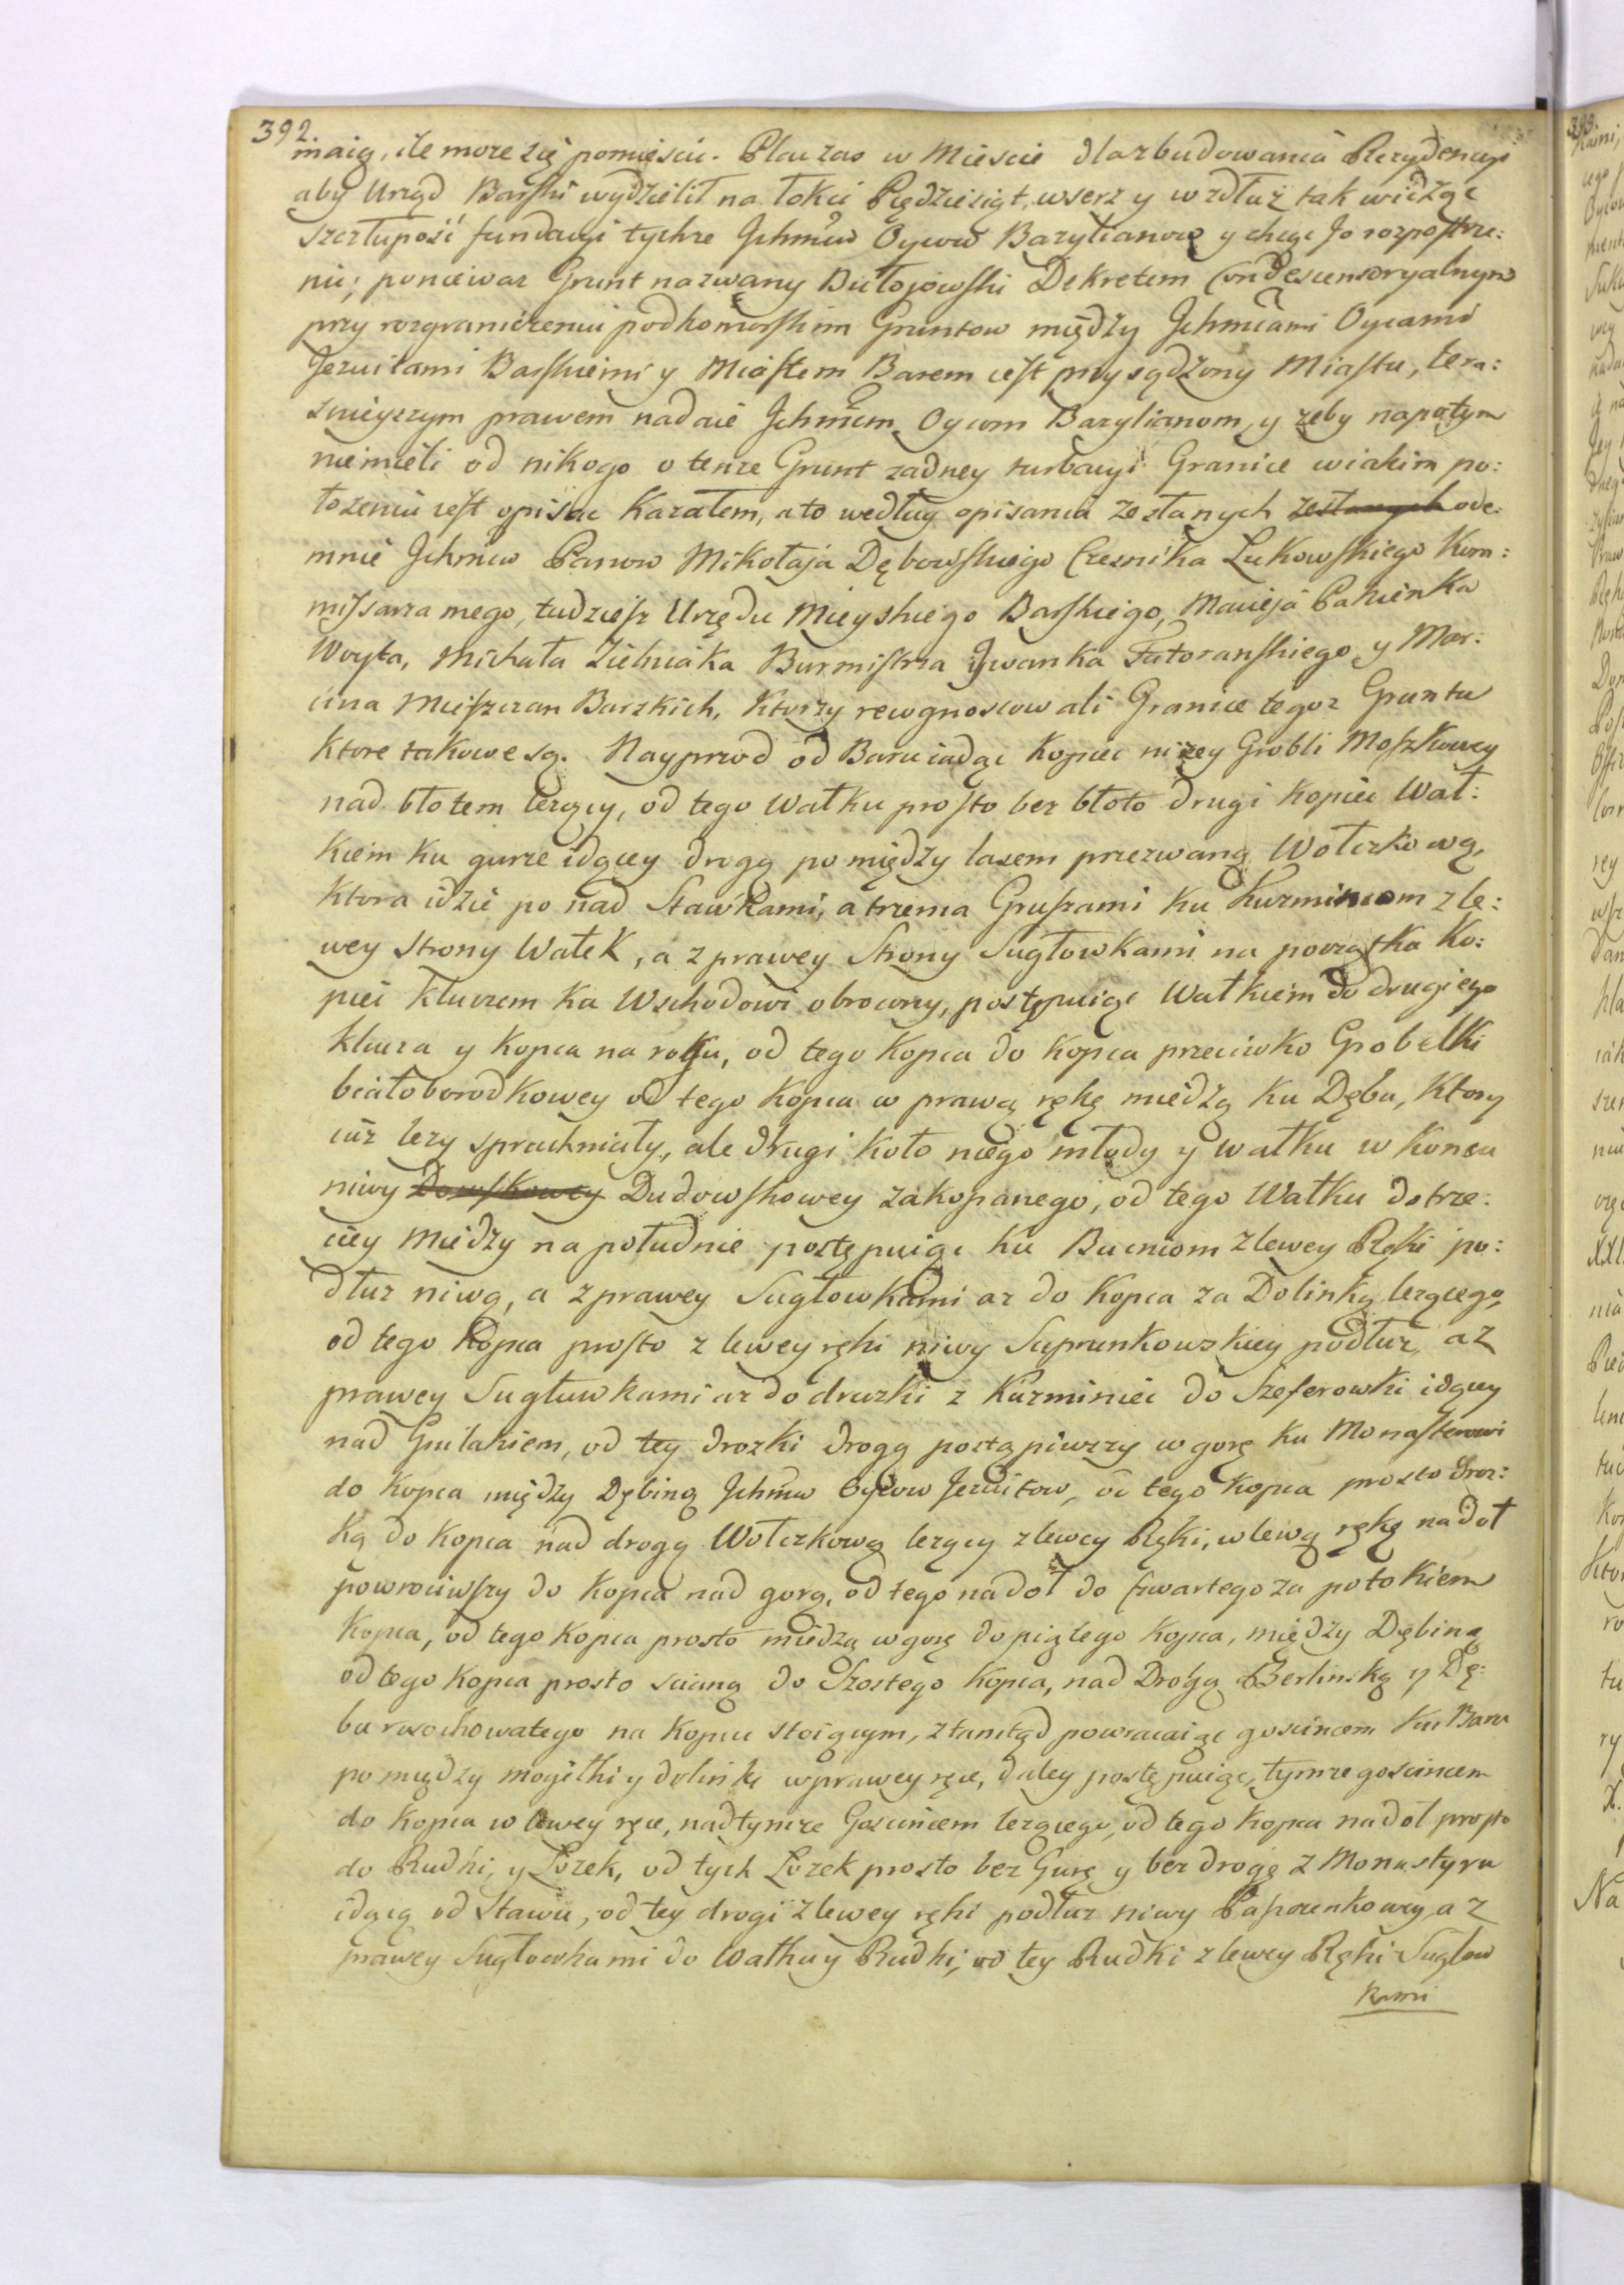 392.
maią, ile może się pomieścic. Plac zas w Miescie dla zbudowania Rezydencyi
aby Urząd Barski wydzielił na łokci Pięcdziesiąt, wserz y w zdłuż tak widząc
szczupłość fundacyi tychże Jchmciow Oycow Bazylianow y chcąc Jo rozpostrze:
nic; poniewaz Grunt nazwany Bułojowski Dekretem Condescensoryalnym
przy rozgraniczeniu podkomorskim Gruntow między Jchmciami Oycami
Jezuitami Barskiemi y Miastem Barem iest przysądzony Miastu, tera:
znieyszym prawem nadaie Jchmciom Oycom Bazylianom, y zeby napotym
niemieli od nikogo o tenże Grunt zadney turbacyi Granice wiakim po:
łozeniu iest opisac kazałem, a to według opisania zesłanych zesłanych ode:
mnie Jchmciow Panow Mikołaja Dębowskiego Czesnika Lukowskiego Kom:
missarza mego, tudziesz Urzędu Mieyskiego Barskiego, Macieja Pakienka
Woyta, Michała Zielniaka Burmistrza Jwanka Futoranskiego y Mar:
cina Mieszczan Barzkich, Ktorzy rewgnoscowali Granice tegoz Gruntu
ktore takowe są. Nayprzod od Baru iadąc kopiec nizey Grobli Moszkowey
nad błotem lezący, od tego Wałku prosto bez błoto drugi kopiec Wał:
kiem ku gurze idącey drogą pomiędzy lasem przezwaną Wołczkową,
ktora idzie po nad Stawkami, a trzema Gruszami ku Kuzmincom z le:
wey strony Wałek, a z prawey Strony Sugłowkami na początka ko:
piec kluczem ka Wschodowi obrocony, postępuiąc Wałkiem do drugiego
klucza y Kopca na rogu, od tego Kopca do Kopca przeciwko Grobelki
białoborodkowey od tego Kopca w prawą rękę miedzą ku Dębu, Ktory
iuz lezy sprachniały, ale drugi koło niego młody y wałku w Koncu
niwy Dowskowey Dudowskowey zakopanego, od tego Wałku do trze:
ciey Miedzy na południe postępuiąc ku Bucniom z lewey Ręki po:
dłuz niwą, a z prawey Sugłowkami az do Kopca za Dolinką lezącego,
od tego kopca prosto z lewey ręki niwy Suprunkowskiey podłuz, a z
prawey Sugłuwkami az do druzki z Kuzminiec do Szeferowki idącey
nad Gniłakiem, od tey drozki drogą postąpiwszy w gorę ku Monasterowi
do Kopca między Dębiną Jchmciow Oycow Jezuitow, od tego Kopca prosto droz:
ką do Kopca nad drogą Wołczkową lezący z lewey Ręki, w lewą rękę na doł
powrociwszy do Kopca nad gorą, od tego na doł do czwartego za potokiem
Kopca, od tego Kopca prosto miedzą w gorę do piątego Kopca, między Dębiną
od tego Kopca prosto scianą do Szostego Kopca, nad Drogą Berlinską y Dę:
bu rosochowatego na Kopcu stoiącym, ztamtąd powracaiąc goscincem ku Baru
pomiędzy mogiłki y dolinkę w prawey ręce, daley postępuiąc, tymze goscincem
do Kopca w lewey ręce, nad tymze Goscincem lezącego, od tego Kopca na doł prosto
do Rudki, y Łozek, od tych Łozek prosto bez Gurę y bez drogę z Monastyru
idącą od Stawu, od tey drogi z lewey ręki podłuz niwy Paszenkowey, a z
prawey Sugłowkami do Wałku y Rudki, od tey Rudki z lewey Ręki Sugłow
kami